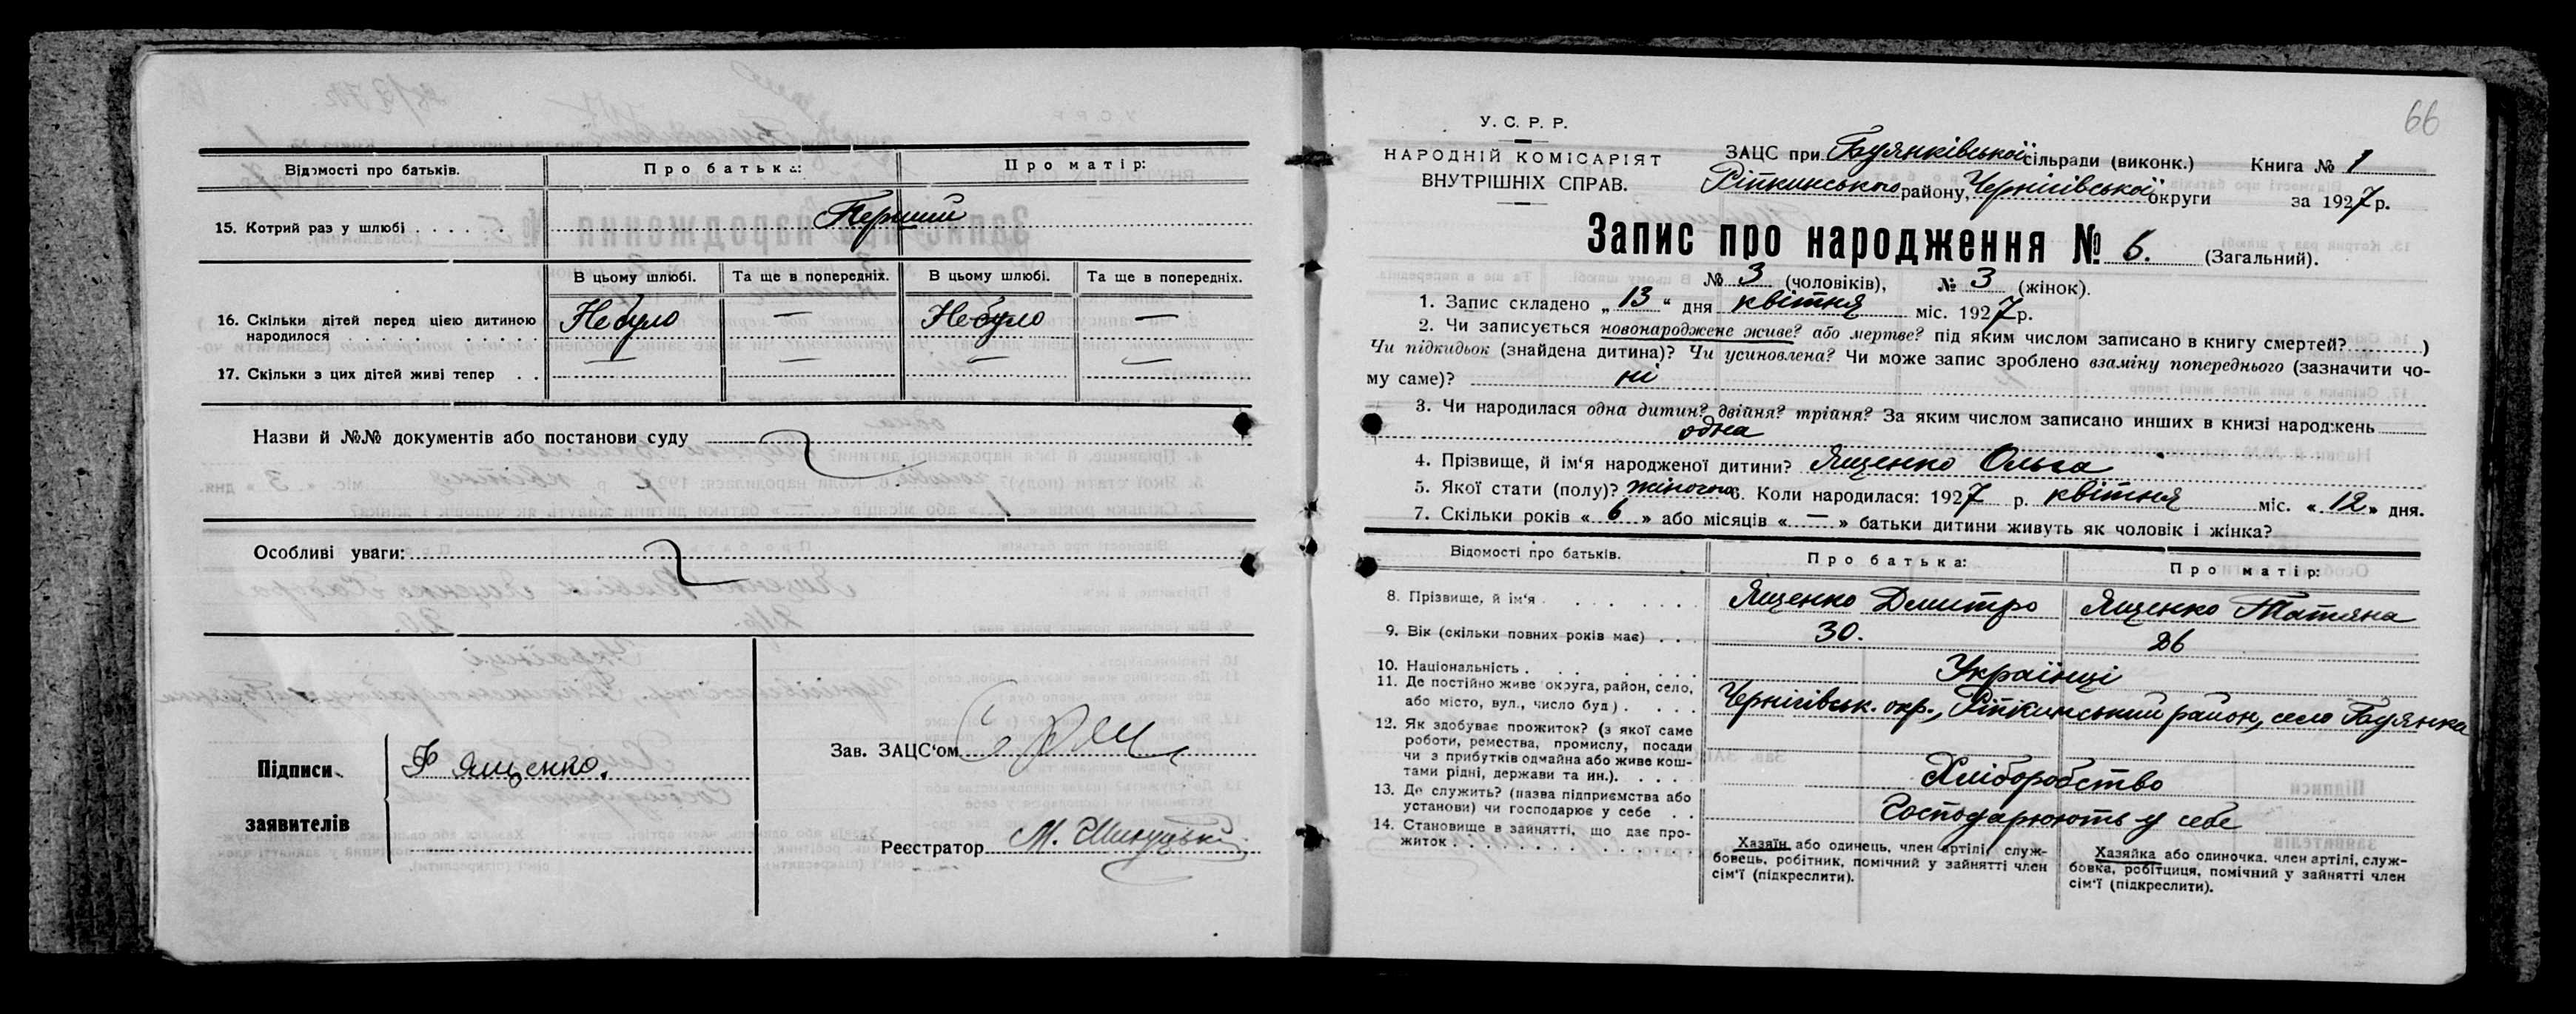 Відомості про батьків.
Про батька:
Про матір:
15. Котрий раз у шлюбі . . . . . .
Перший
В цьому шлюбі.
Та ще в попередніх.
В цьому шлюбі.
Та ще в попередніх.
16. Скільки дітей перед цією дитиною
народилося . . . . . . . . . .
Небуло
—
Небуло
—
17. Скільки з цих дітей живі тепер . .
—
—
—
—
Назви й №№ документів або постанови суду
Особливі уваги:
Підписи
заявителів
Ященко.
Зав. ЗАЦС'ом
Реєстратор
М.
66
У. С. Р. Р.
НАРОДНІЙ КОМІСАРІЯТ
ВНУТРІШНІХ СПРАВ.
ЗАЦС при Буянківської сільради (виконк.)
Книга № 1
Ріпкинського району, Чернігівської округи
за 1927 р.
Запис про народження № 6. (Загальний).
№ 3 (чоловіків), № 3 (жінок).
1. Запис складено „ 13 “ дня квітня міс. 1927 р.
2. Чи записується новонароджене живе? або мертве? під яким числом записано в книгу смертей? )
Чи підкидьок (знайдена дитина)? Чи усиновлена? Чи може запис зроблено взаміну попереднього (зазначити чо-
му саме)? ні
3. Чи народилася одна дитин? двійня? трійня? За яким числом записано инших в книзі народжень
одна
4. Прізвище, й ім'я народженої дитини? Ященко Ольга
5. Якої стати (полу)? жіночого 6. Коли народилася: 1927 р. квітня міс. « 12 » дня.
7. Скільки років « 6 » або місяців « — » батьки дитини живуть як чоловік і жінка?
Відомості про батьків.
Про батька:
Про матір:
8. Прізвище, й ім'я . . . . . . .
Ященко Дмитро
Ященко Татяна
9. Вік (скільки повних років має) . . .
30.
26
10. Національність . . . . . . . .
Українці
11. Де постійно живе округа, район, село,
або місто, вул., число буд) . . . .
Чернігівськ. окр., Ріпкинський район, село Буянка
12. Як здобуває прожиток? (з якої саме
роботи, ремества, промислу, посади
чи з прибутків одмайна або живе кош-
тами рідні, держави та ин.). . . . .
Хліборобство
13. Де служить? (назва підприємства або
установи) чи господарює у себе . .
Господарюють у себе
14. Становище в зайнятті, що дає про-
житок . . . . . . . . . . . . .
Хазяїн або одинець, член артілі, служ-
бовець, робітник, помічний у зайнятті член
сім'ї (підкреслити).
Хазяйка або одиночка, член артілі, служ-
бовка, робітциця, помічний у зайнятті член
сім'ї (підкреслити).